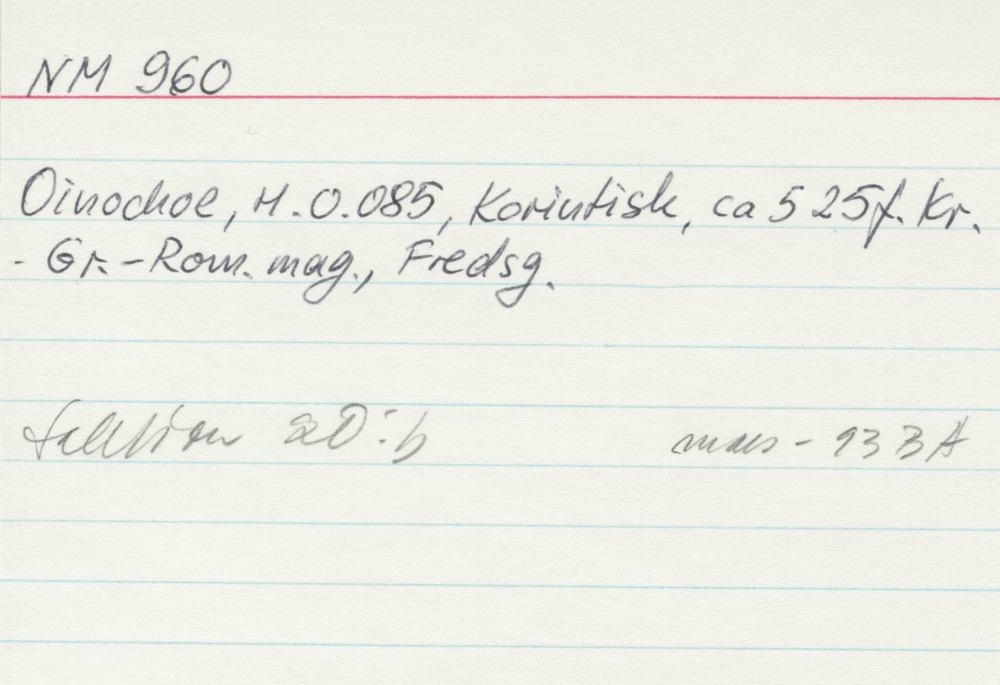 NM 960
Oinochoe, H.0.085, Korintisk, ca 525 f. Kr.
- Gr.-Rom. mag., Fredsg.
Sektion 20:b mars - 93 BA